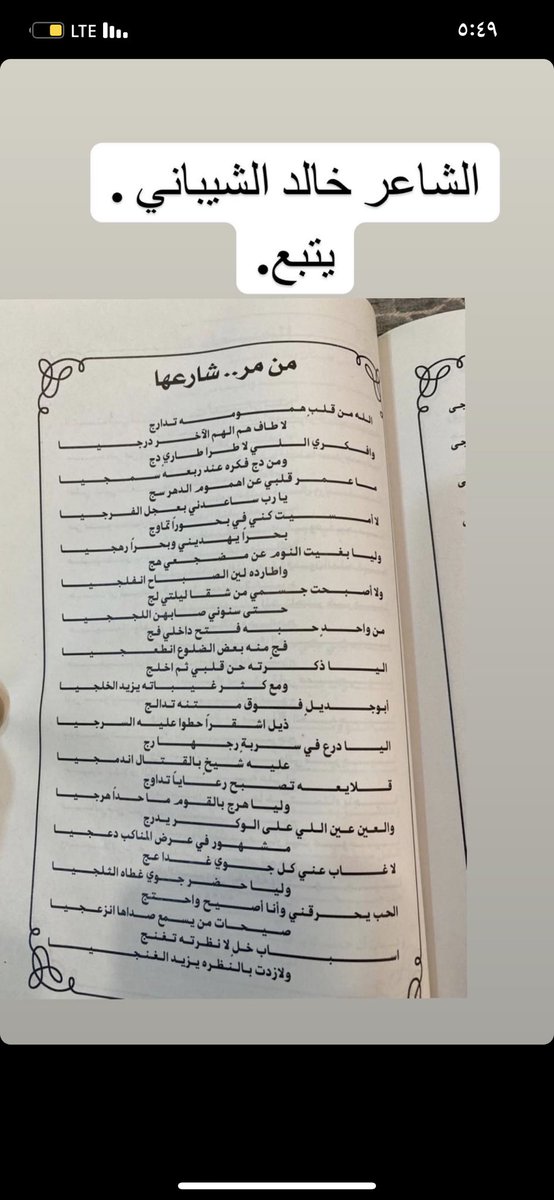 LTE
٥:٤٩
الشاعر خالد الشيباني .
يتبع.
من مر.. شارعها
الله من قلب همومه تدارج
لا طاف هم الهم الآخر درجيا
وافكري اللي لا طرا طاري دج
ومن دج فكره عند ربعه سمجيا
ما عمر قلبي عن اهموم الدهر سج
يا رب ساعدني بعجل الفرجيا
لا أمسيت كني في بحوراً تماوج
بحراً يهديني وبحراً رهجيا
وليا بغيت النوم عن مضجعي هج
واطارده لين الصباح انفلجيا
ولا أصبحت جسمي من شقا ليلتي لج
حتى سنوني صابهن اللججيا
من واحدٍ حبه فتح داخلي فج
فج منه بعض الضلوع انطعجيا
اليا ذكرته حن قلبي ثم اخلج
ومع كثر غيباته يزيد الخلجيا
أبو جديلٍ فوق متنه تدالج
ذيل اشقراً حطوا عليه السرجيا
اليا درع في سربةٍ رجها رج
عليه شيخ بالقتال اندمجيا
قلايعه تصبح رعاياً تداوج
وليا هرج بالقوم ما حداً هرجيا
والعين عين اللي على الوكر يدرج
مشهور في عرض المناكب دعجيا
لا غاب عني كل جوي غدا عج
وليا حضر جوي غطاه الثلجيا
الحب يحرقني وأنا أصيح واحتج
صيحات من يسمع صداها انزعجيا
اسباب خل لا نظرته تغنج
ولا زدت بالنظره يزيد الغنجيا
جى
جى